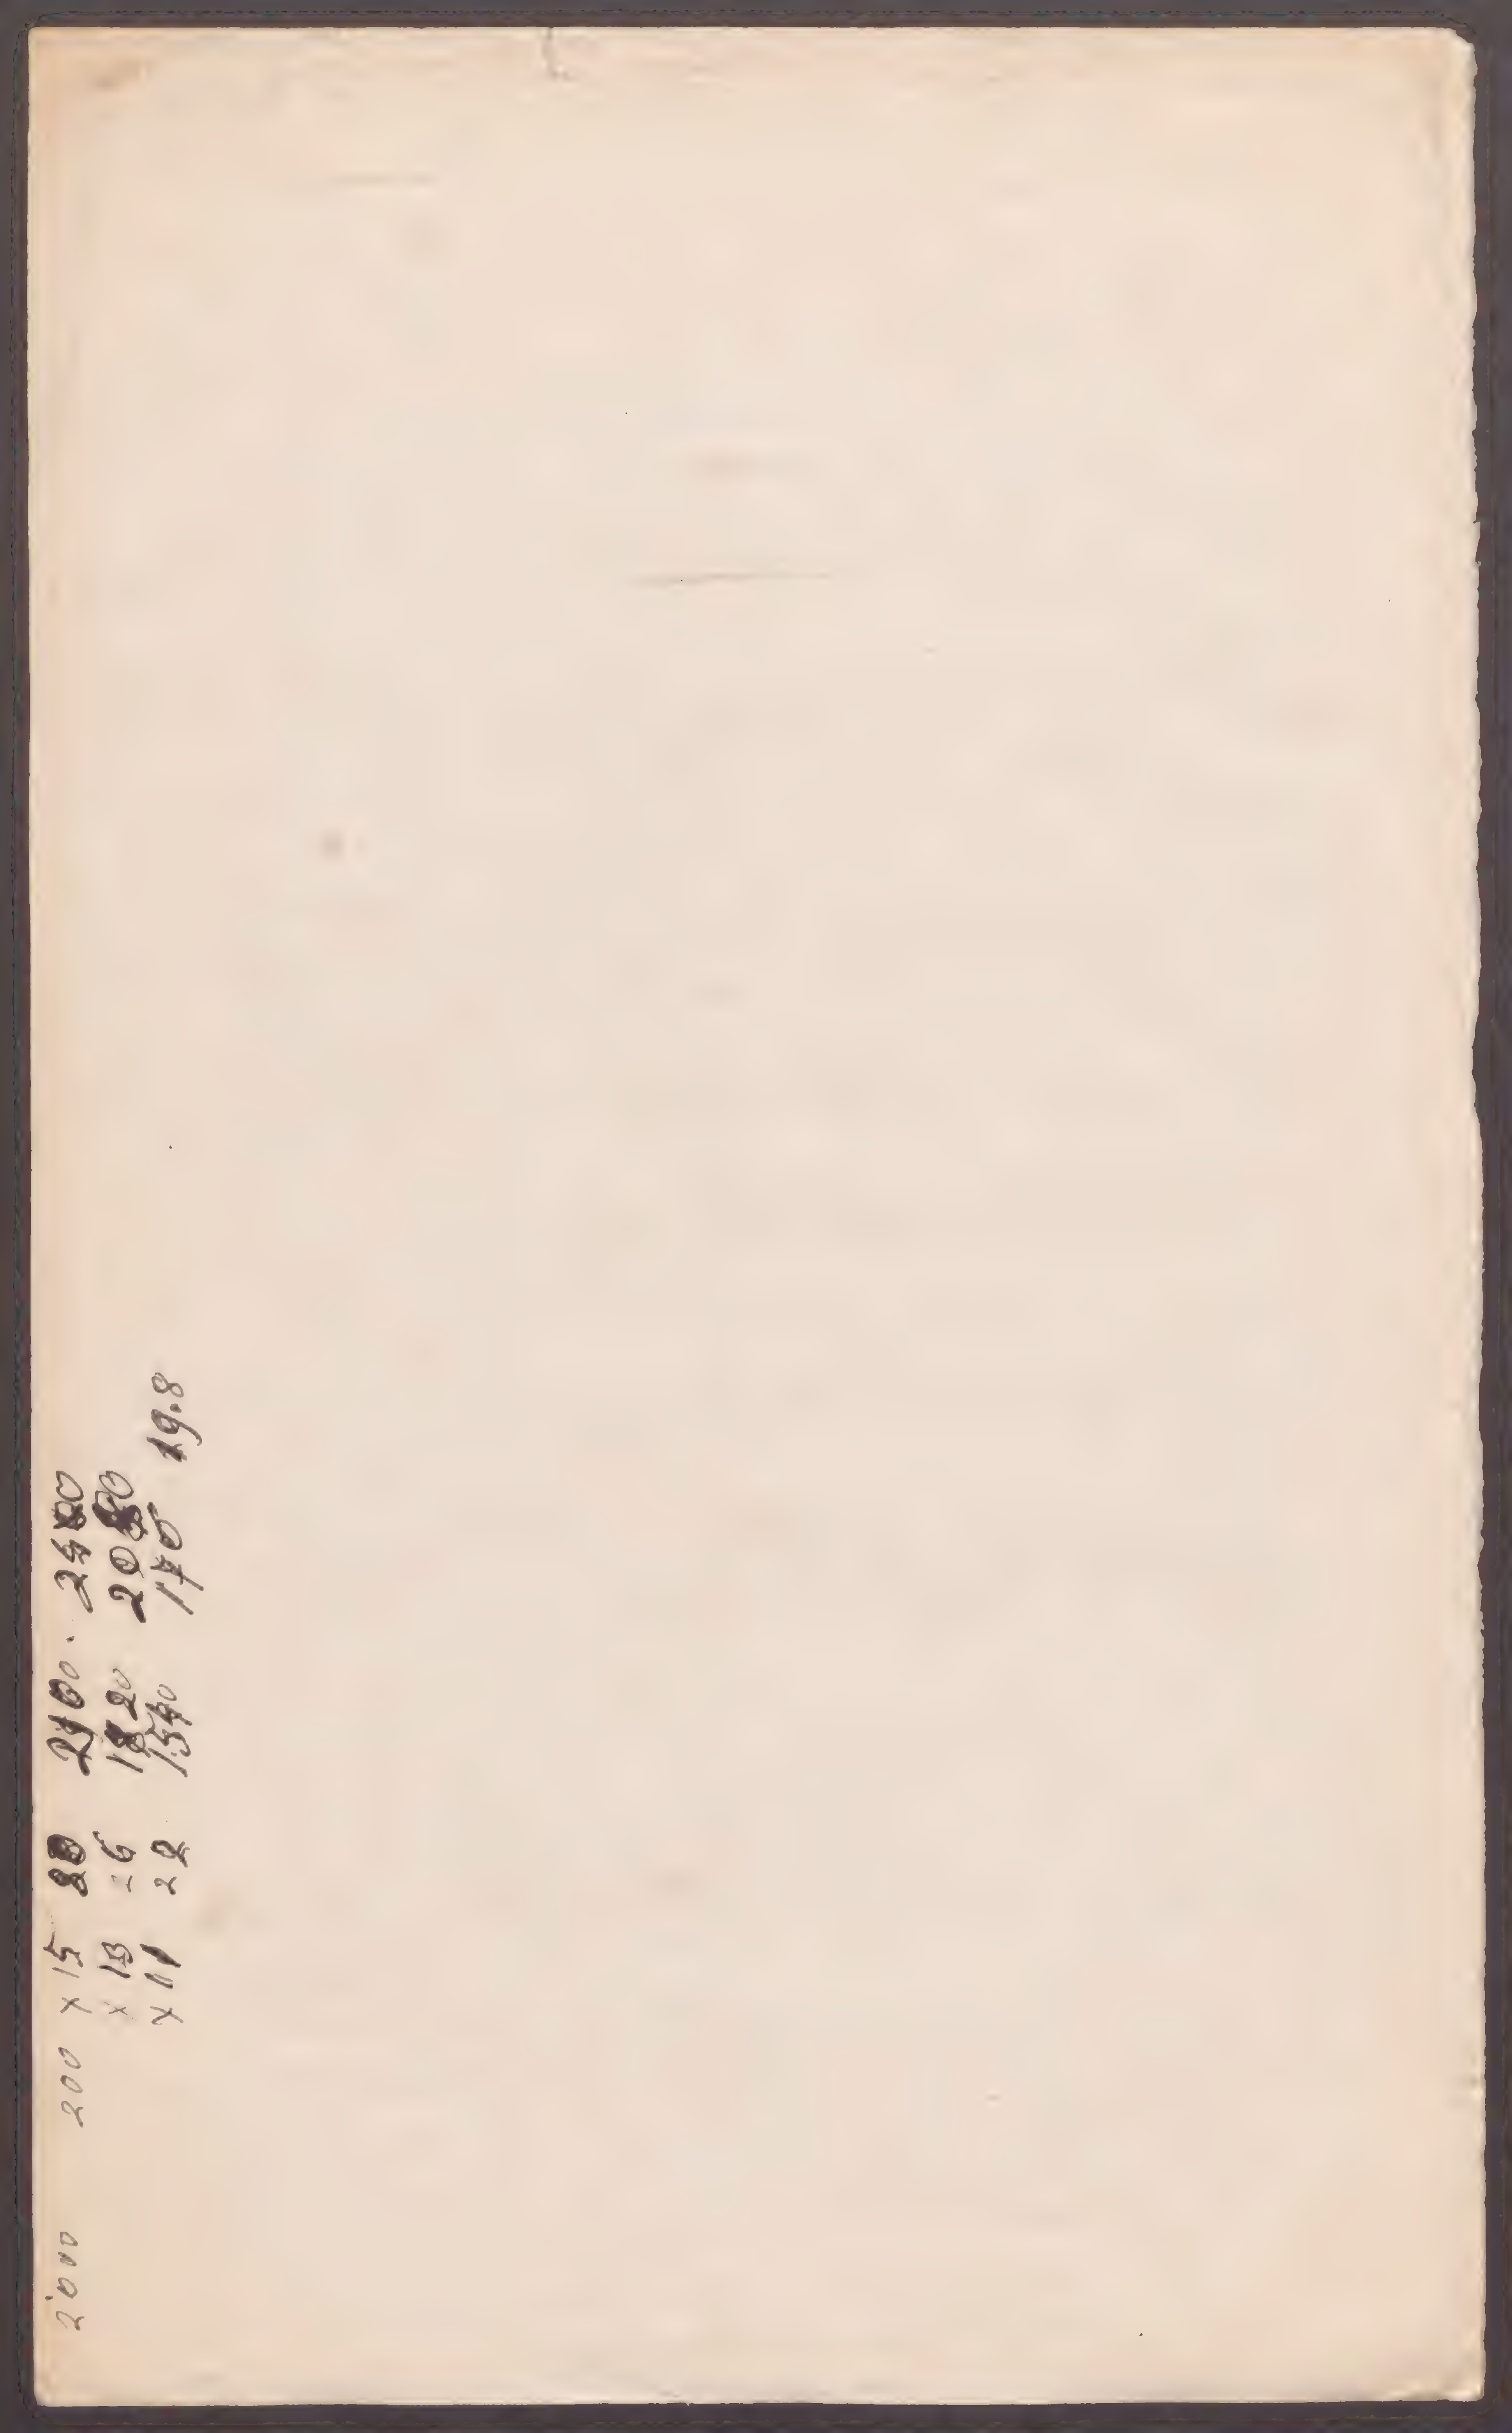 2000 200 x 15 2100. 2400
x 13 26 1820 2080
x 11 22 1540 170 19.8